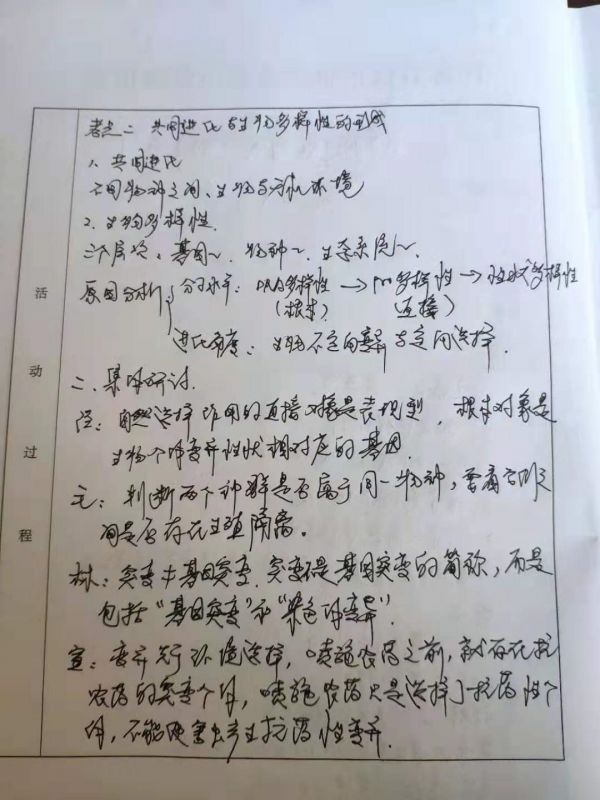 活动过程
考点二 共同进化与生物多样性的形成
1、共同进化
不同物种之间、生物与无机环境
2、生物多样性.
三个层次：基因~、物种~、生态系统~.
原因分析 分子水平：DNA多样性 → pro多样性 → 性状多样性
(根本) (直接)
进化角度：生物不定向变异与定向选择.
二、集体研讨.
自然选择作用的直接对象是表现型，根本对象是
生物个体变异性状相对应的基因.
元：判断两个种群是否属于同一物种，要看它们之
间是否存在生殖隔离。
林：突变≠基因突变.突变不是基因突变的简称，而是
包括“基因突变”和“染色体变异”.
宣：变异先于环境选择，喷施农药之前，就存在抗
农药的突变个体，喷施农药只是选择了抗药性个
体，不能使害虫产生抗药性变异.